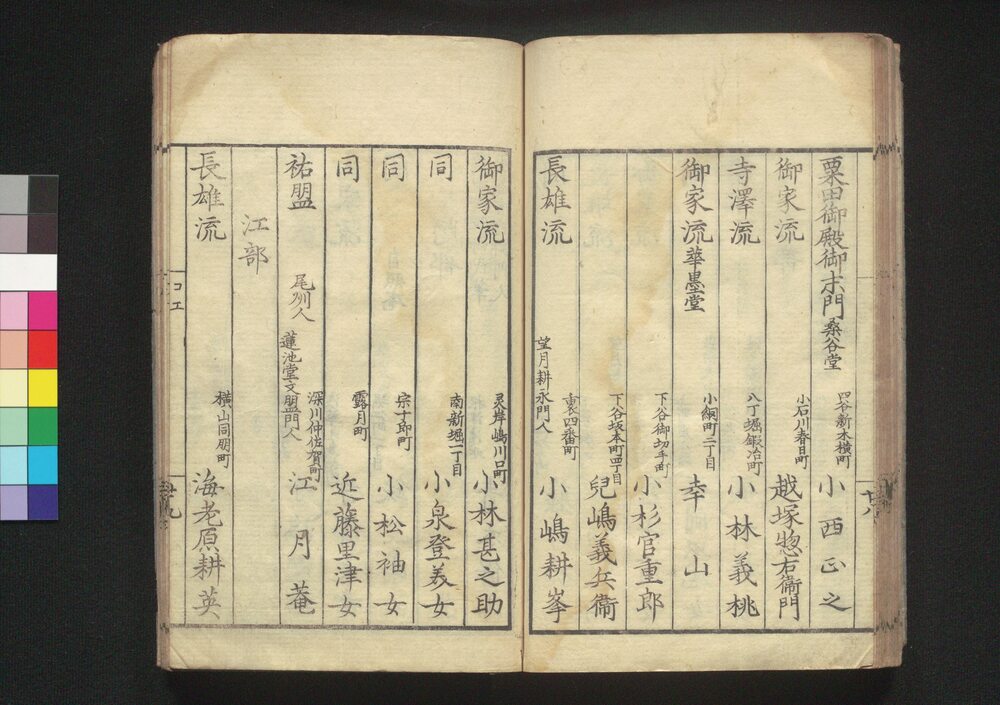 粟田御殿御末門 桑谷堂 四谷新木横町 小西正之
御家流 小石川春日町 越塚惣右衛門
寺澤流 八丁堀鍛冶町 小林義桃
御家流 華墨堂 小網町二丁目 幸山
下谷御切手町 小杉官重郎
下谷坂本町四丁目 兒嶋義兵衞
長雄流 望月耕永門人 裏四番町 小嶋耕峯
十八
御家流 灵岸嶋川口町 小林甚之助
同 南新堀一丁目 小泉登美女
同 宗十郎町 小松袖女
同 露月町 近藤里津女
祐盟 尾州人 蓮池堂文盟門人 深川仲佐賀町 江月菴
江部
長雄流 横山同朋町 海老原耕英
コエ
十九